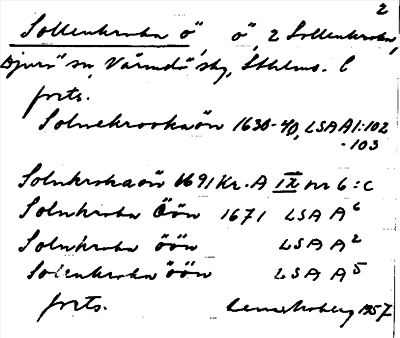 2
Sollenkroka ö, ö, 2 Sollenkroka,
Djurö sn, Värmdö skg, Sthlms. l
forts.
Solnekrookaön 1630-40, LSA A1:102
-103
Solnkrokaön 1691 Kr. A IX nr 6:c
Solnkroka Öön 1671 LSA A6
Solnkroka öön LSA A2
Solenkroka öön LSA A5
forts. 1957